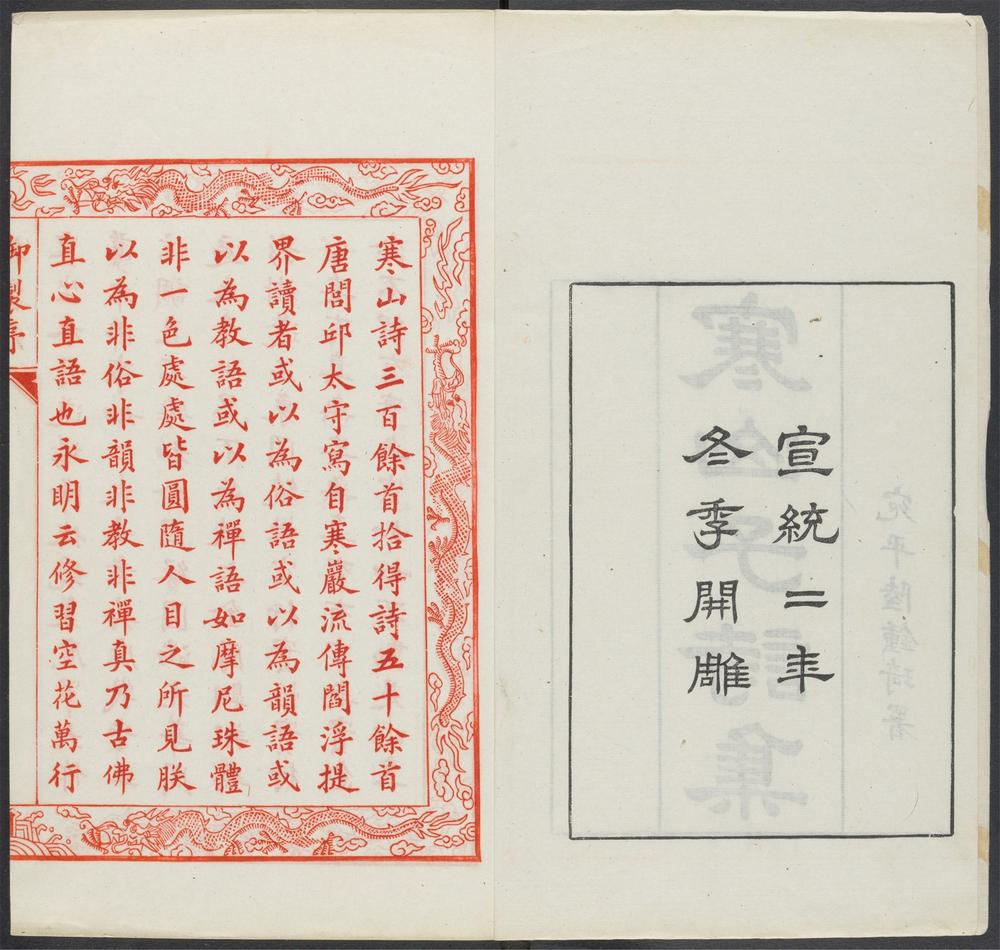 宣統二年
冬季開雕
寒山詩三百餘首拾得詩五十餘首
唐閭邱太守寫自寒巖流傳閻浮提
界讀者或以為俗語或以為韻語或
以為教語或以為禪語如摩尼珠體
非一色處處皆圓隨人目之所見朕
以為非俗非韻非教非禪真乃古佛
直心直語也永明云修習空花萬行
御製序
宛平陸鍾琦署
寒山子詩集